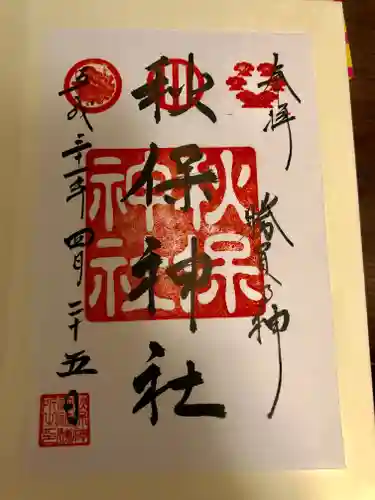 奉拝
勝負の神
秋保神社
秋保神社
平成三十一年四月二十五日